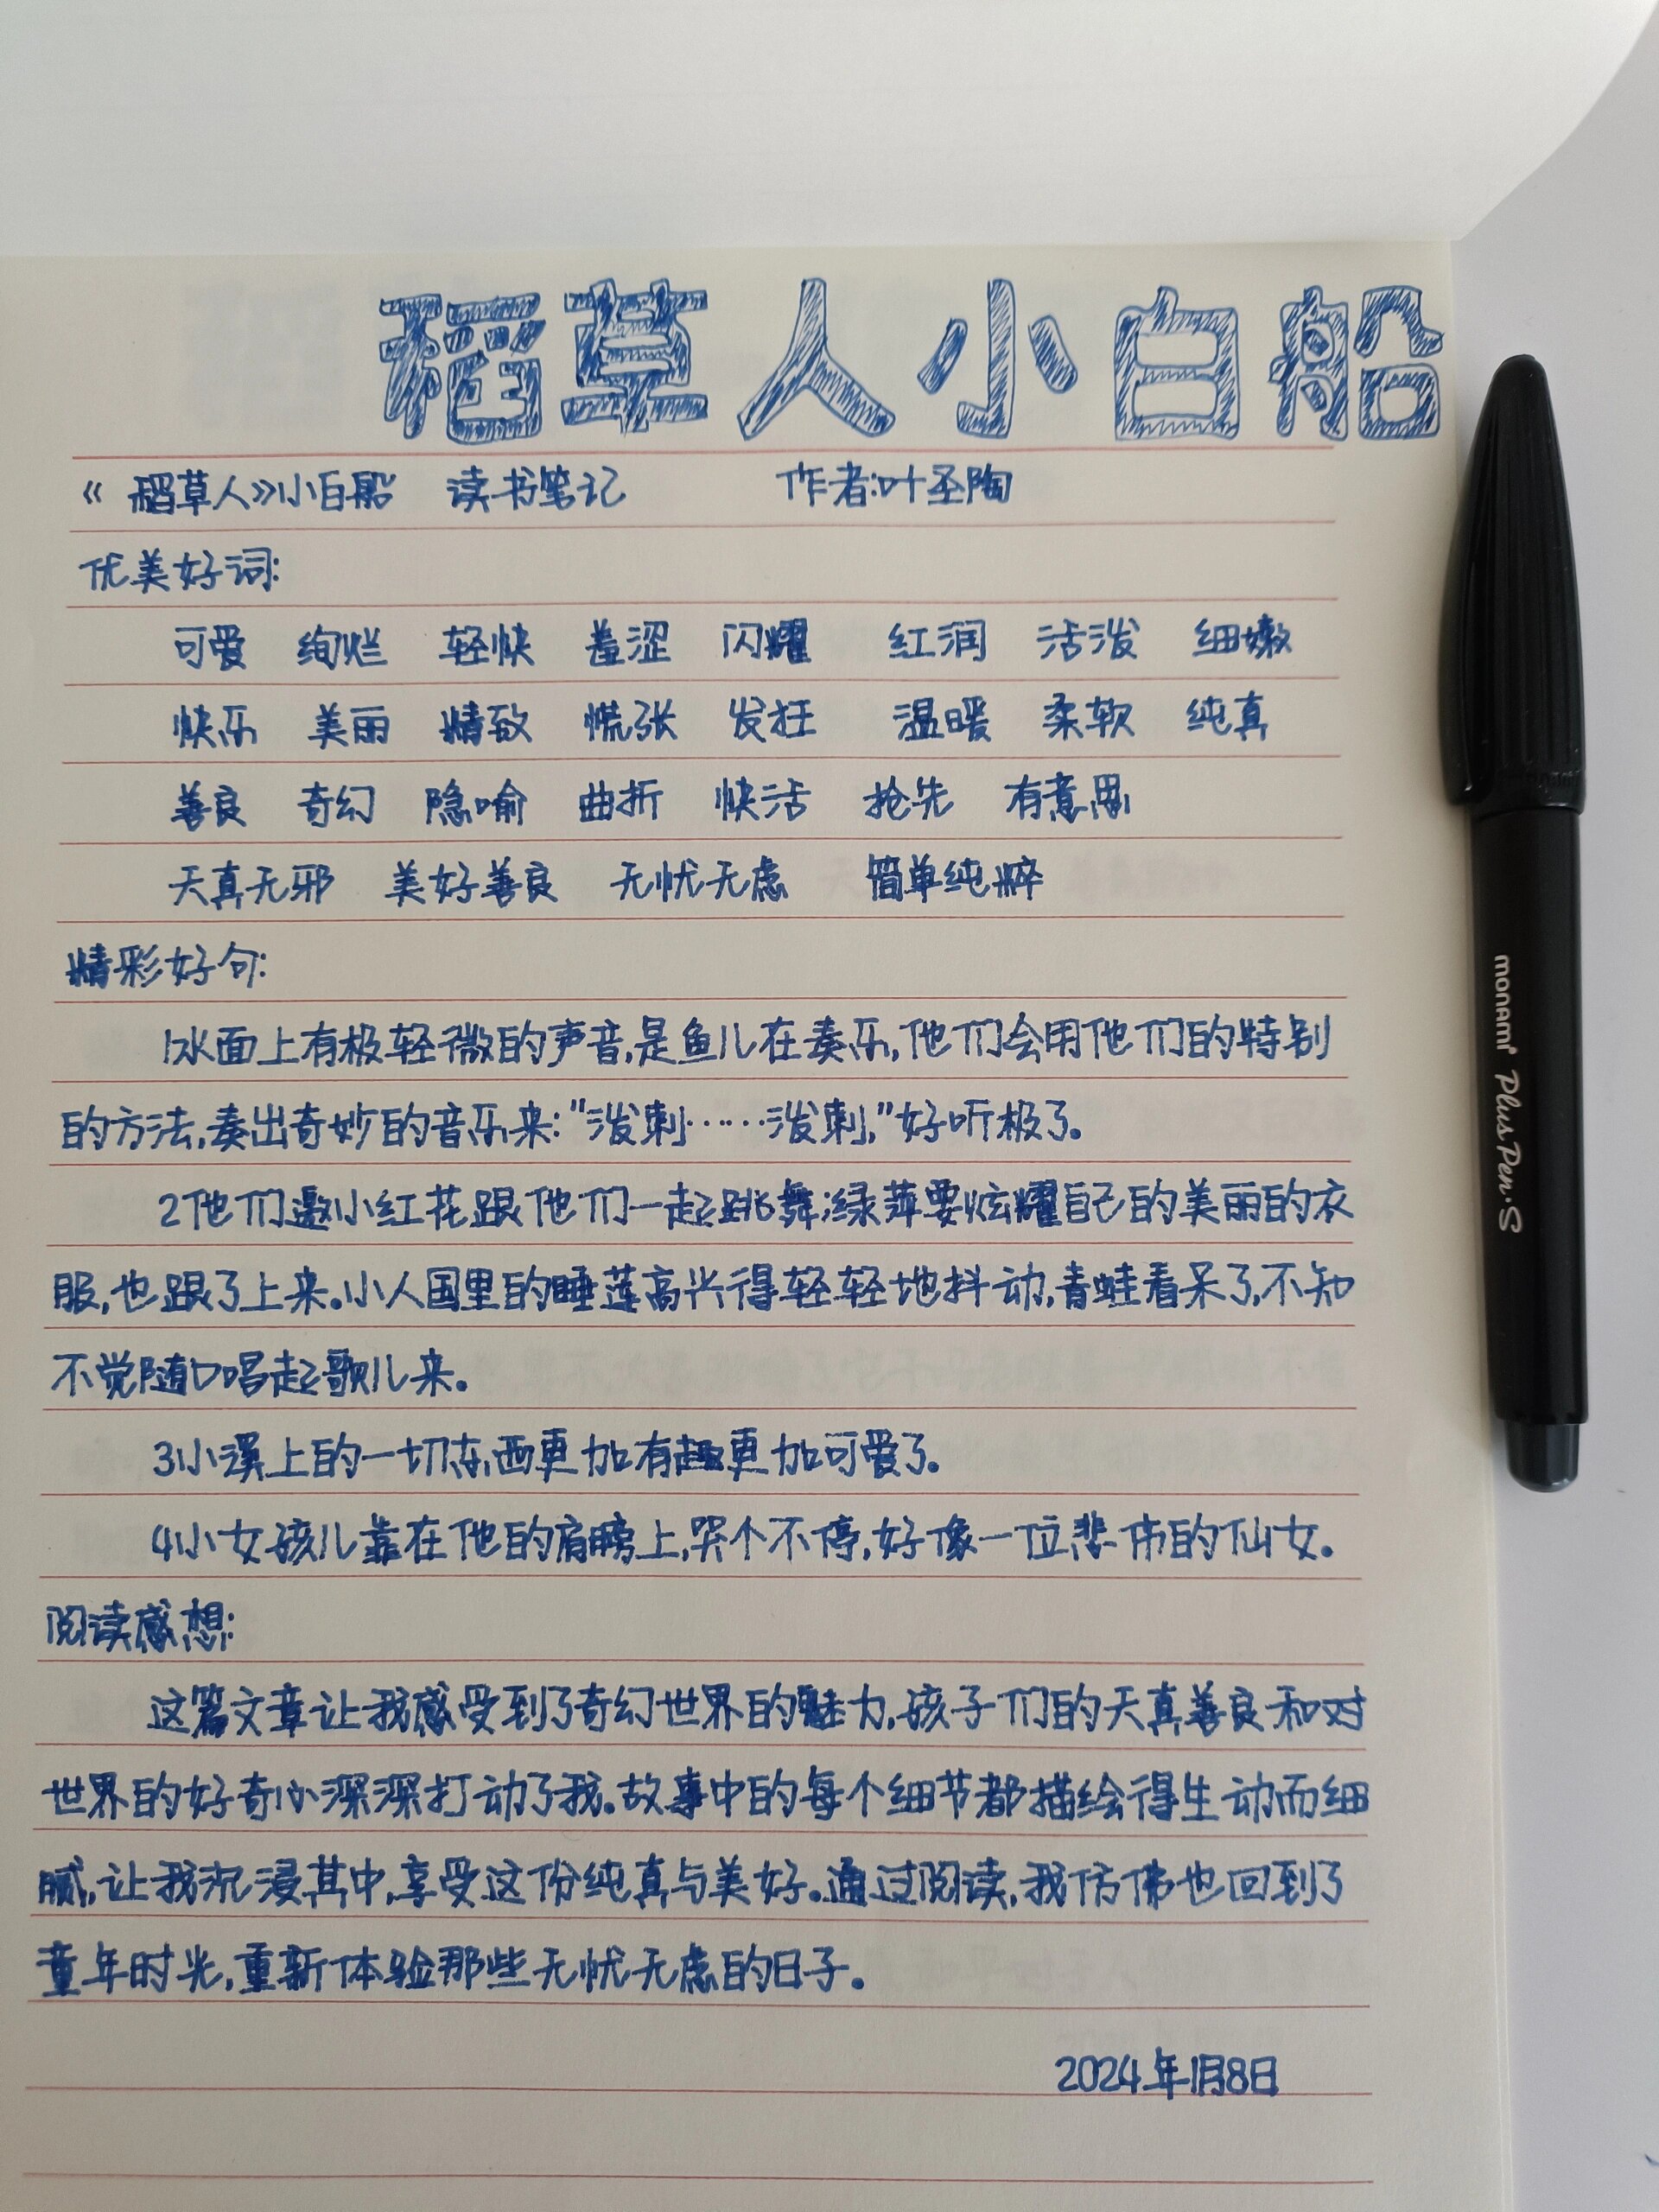 稻草人小白船
《稻草人》小白船 读书笔记 作者:叶圣陶
优美好词:
可爱 绚烂 轻快 羞涩 闪耀 红润 活泼 细嫩
快乐 美丽 精致 慌张 发狂 温暖 柔软 纯真
善良 奇幻 隐喻 曲折 快活 抢先 有意思
天真无邪 美好善良 无忧无虑 简单纯粹
精彩好句:
1水面上有极轻微的声音,是鱼儿在奏乐,他们会用他们的特别
的方法,奏出奇妙的音乐来:"泼刺……泼刺,"好听极了。
2他们邀小红花跟他们一起跳舞;绿萍要炫耀自己的美丽的衣
服,也跟了上来。小人国里的睡莲高兴得轻轻地抖动,青蛙看呆了,不知
不觉随口唱起歌儿来。
3小溪上的一切东西更加有趣更加可爱了。
4小女孩儿靠在他的肩膀上,哭个不停,好像一位悲伤的仙女。
阅读感想:
这篇文章让我感受到了奇幻世界的魅力,孩子们的天真善良和对
世界的好奇心深深打动了我。故事中的每个细节都描绘得生动而细
腻,让我沉浸其中,享受这份纯真与美好。通过阅读,我仿佛也回到了
童年时光,重新体验那些无忧无虑的日子。
2024年1月8日
monami Plus Pen·S